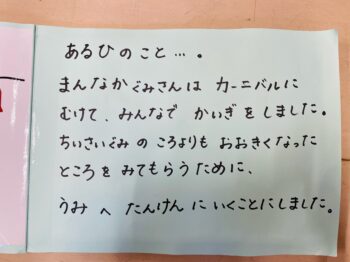 あるひのこと…。
まんなかぐみさんは カーニバルに
むけて、みんなで かいぎを しました。
ちいさいぐみの ころよりも おおきくなった
ところを みてもらうために、
うみへ たんけんに いくことにしました。